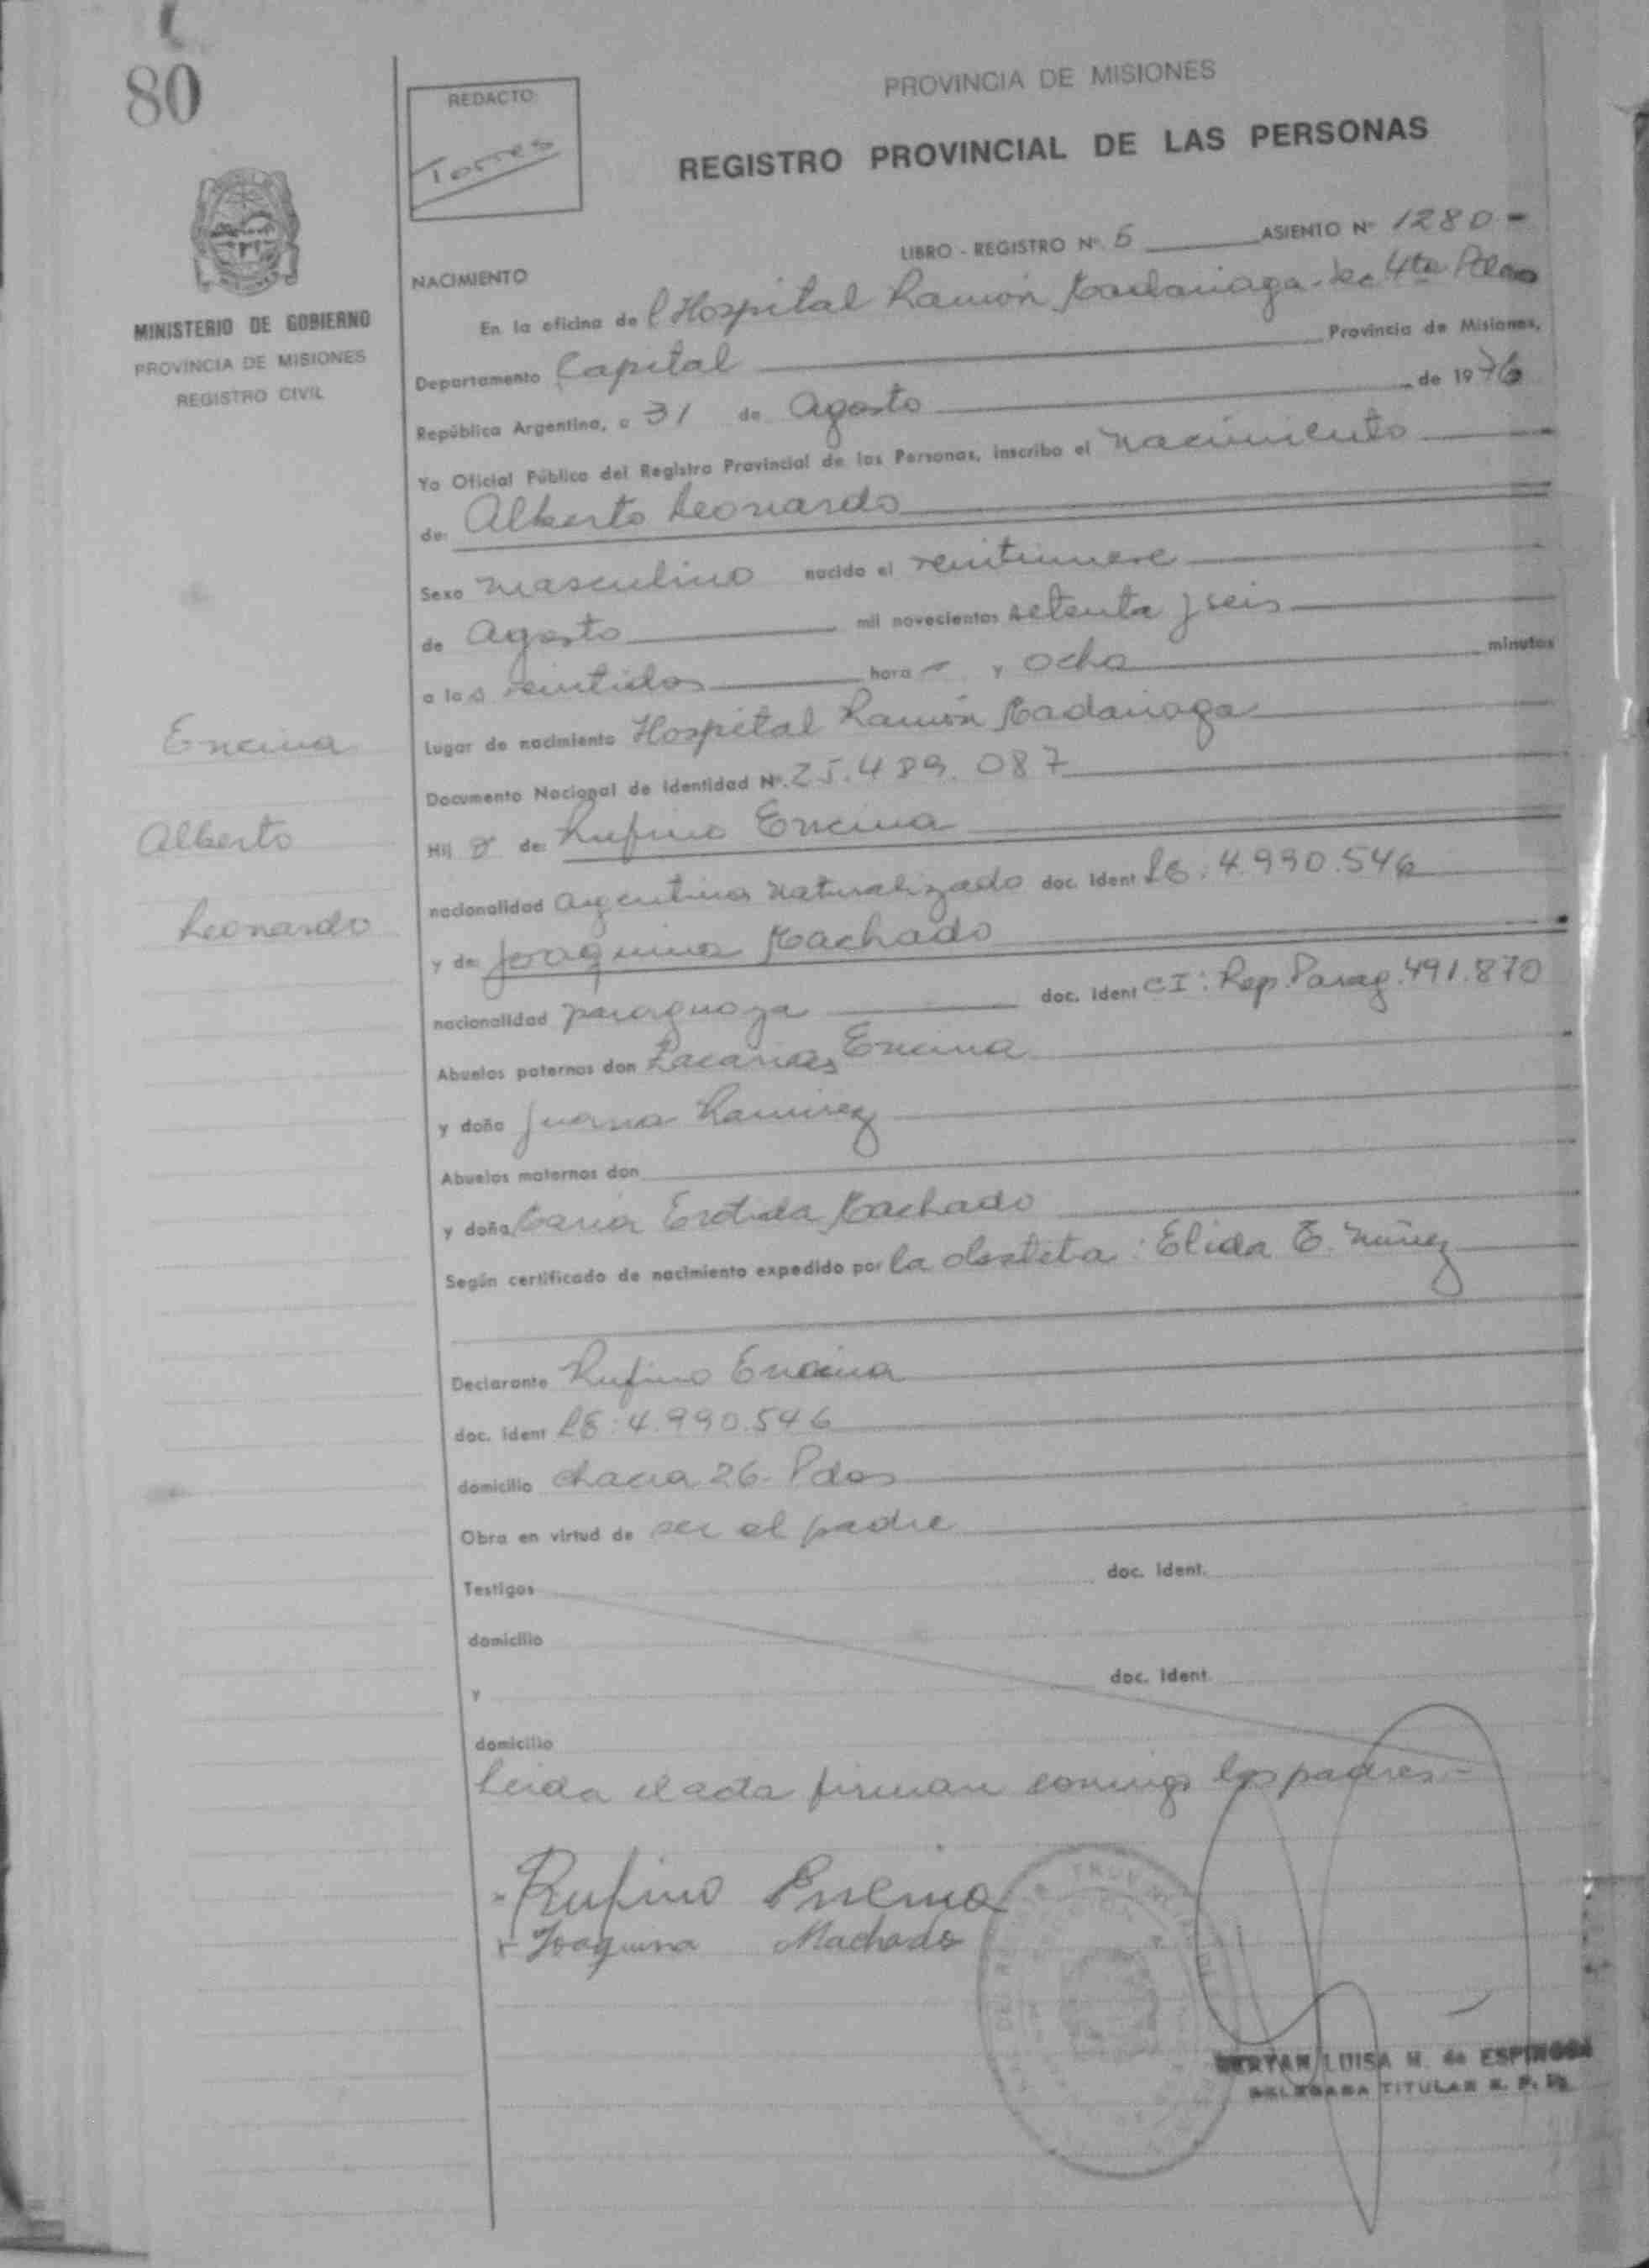 80
REDACTO
Torres
PROVINCIA DE MISIONES
REGISTRO PROVINCIAL DE LAS PERSONAS
MINISTERIO DE GOBIERNO
PROVINCIA DE MISIONES
REGISTRO CIVIL
LIBRO - REGISTRO Nº. 5 ASIENTO Nº 1280-
NACIMIENTO
En la oficina del Hospital Ramón Madariaga - Sec 4ta Pdas
Departamento Capital Provincia de Misiones,
República Argentina, a 31 de Agosto de 1976
Yo Oficial Público del Registro Provincial de las Personas, inscribo el nacimiento
de: Alberto Leonardo
Sexo masculino nacido el veintinueve
de Agosto mil novecientos setenta y seis
a las veintidos hora - y ocho minutos
Lugar de nacimiento Hospital Ramón Madariaga
Documento Nacional de Identidad Nº. 25.489.087
Hijo de: Rufino Encina
nacionalidad argentino naturalizado doc. Ident LE: 4.990.546
y de: Joaquina Machado
nacionalidad paraguaya doc. Ident CI: Rep. Parag. 491.870
Abuelos paternos don Zacarias Encina
y doña Juana Ramirez
Abuelos maternos don
y doña Maria Machado
Según certificado de nacimiento expedido por la obstetra: Elida E. Nuñez
Declarante Rufino Encina
doc. ident LE: 4.990.546
domicilio chacra 26 - Pdas
Obra en virtud de ser el padre
Testigos doc. Ident.
domicilio
y doc. Ident.
domicilio
Leida el acta firman conmigo los padres -
Rufino Encina
Joaquina Machado
LUISA M. de ESPINOSA
DELEGADA TITULAR R. P. P.
Encina
Alberto
Leonardo